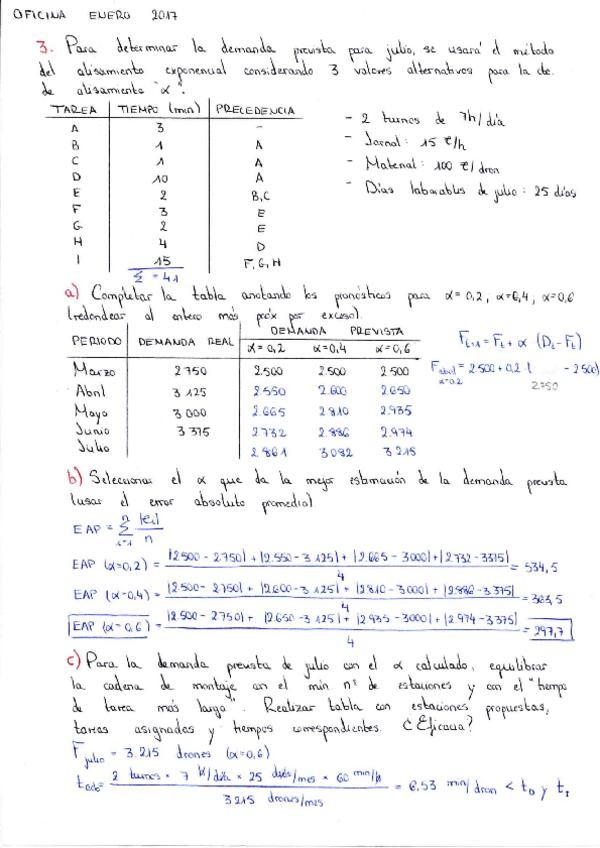 OFICINA ENERO 2017
3. Para determinar la demanda prevista para julio, se usará el método
del alisamiento exponencial considerando 3 valores alternativos para la cte.
de alisamiento "α".
TAREA TIEMPO (min) PRECEDENCIA
A 3 -
B 1 A
C 1 A
D 10 A
E 2 B,C
F 3 E
G 2 E
H 4 D
I 15 F,G,H
Σ = 41
- 2 turnos de 7h/día
- Jornal: 15 €/h
- Material: 100 €/dron
- Días laborables de julio: 25 días
a) Completar la tabla anotando los pronósticos para α=0,2, α=0,4, α=0,6
(redondear al entero más próx por exceso).
PERIODO DEMANDA REAL DEMANDA PREVISTA
α=0,2 α=0,4 α=0,6
Marzo 2750 2.500 2.500 2.500
Abril 3 125 2.550 2.600 2.650
Mayo 3 000 2.665 2.810 2.935
Junio 3 375 2.732 2.886 2.974
Julio 2.861 3.082 3.215
Ft+1 = Ft + α (Dt - Ft)
F abril α=0.2 = 2.500 + 0,2 ( 2750 - 2500)
b) Seleccionar el α que da la mejor estimación de la demanda prevista
(usar el error absoluto promedio)
EAP = Σ i=1 n |ei| / n
EAP (α=0,2) = |2500 - 2750| + |2.550 - 3.125| + |2.665 - 3000| + |2.732 - 3375| / 4 = 534,5
EAP (α=0,4) = |2.500 - 2750| + |2.600 - 3.125| + |2.810 - 3000| + |2.886 - 3.375| / 4 = 363,5
EAP (α=0,6) = |2.500 - 2.750| + |2.650 - 3.125| + |2.935 - 3000| + |2.974 - 3.375| / 4 = 297,7
c) Para la demanda prevista de julio con el α calculado, equilibrar
la cadena de montaje con el mín nº de estaciones y con el "tiempo
de tarea más largo". Realizar tabla con estaciones propuestas,
tareas asignadas y tiempos correspondientes. ¿Eficacia?
F julio = 3.215 drones (α=0,6)
t ciclo = 2 turnos × 7 h/día × 25 días/mes × 60 min/h / 3215 drones/mes = 6,53 min/dron < tD y tI